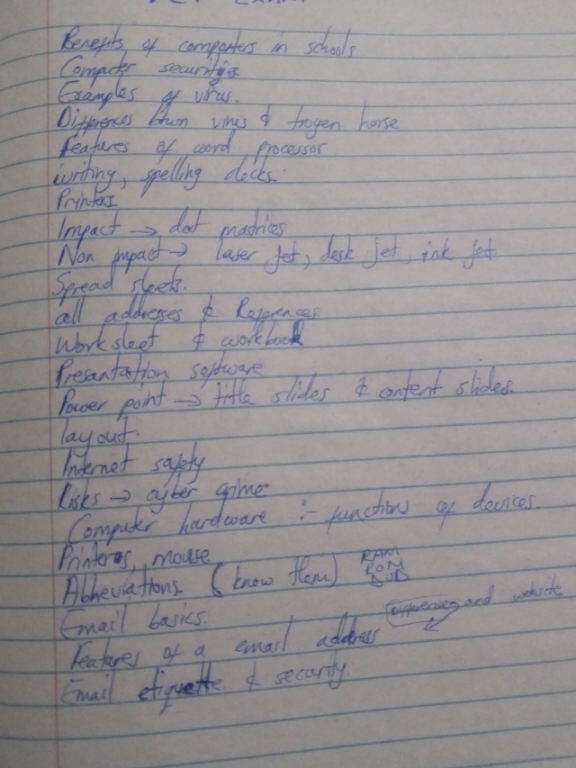 Exam
Benefits of computers in schools
Computer securities
Examples of virus.
Differences btwn virus & trogen horse
Features of word processor
writing, spelling checks.
Printers
Impact → dot matrices
Non impact → laser jet, desk jet, ink jet
Spread sheets.
cell addresses & References
Worksheet & workbook
Presentation software
Power point → title slides & content slides.
layout.
Internet safety
Risks → cyber crime
Computer hardware :- functions of devices.
Printers, mouse
RAM
ROM
DVD
Abbreviations (know them)
Email basics.
differences and website
Features of a email address
Email etiquette & security.